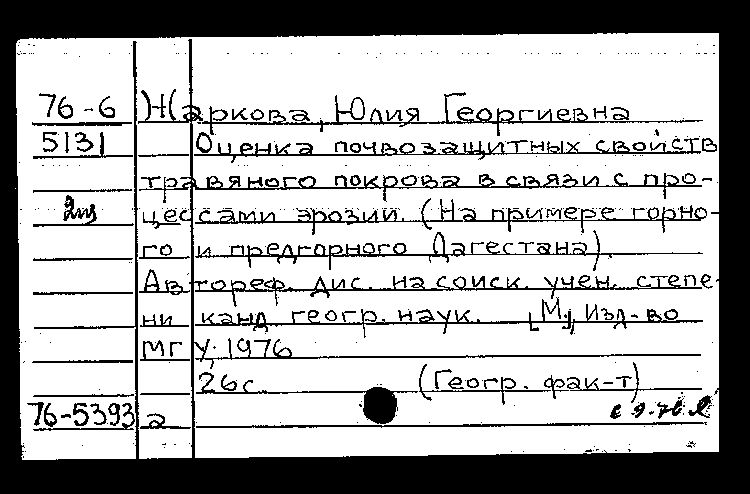 76-6 Жаркова, Юлия Георгиевна
5131 Оценка почвозащитных свойств
травяного покрова в связи с про-
цессами эрозии. (На примере горно-
го и предгорного Дагестана).
Автореф. дис. на соиск. учен. степе-
ни канд геогр. наук. [М.], Изд-во
МГУ. 1976
26 с. (Геогр. фак-т)
76-5393 а